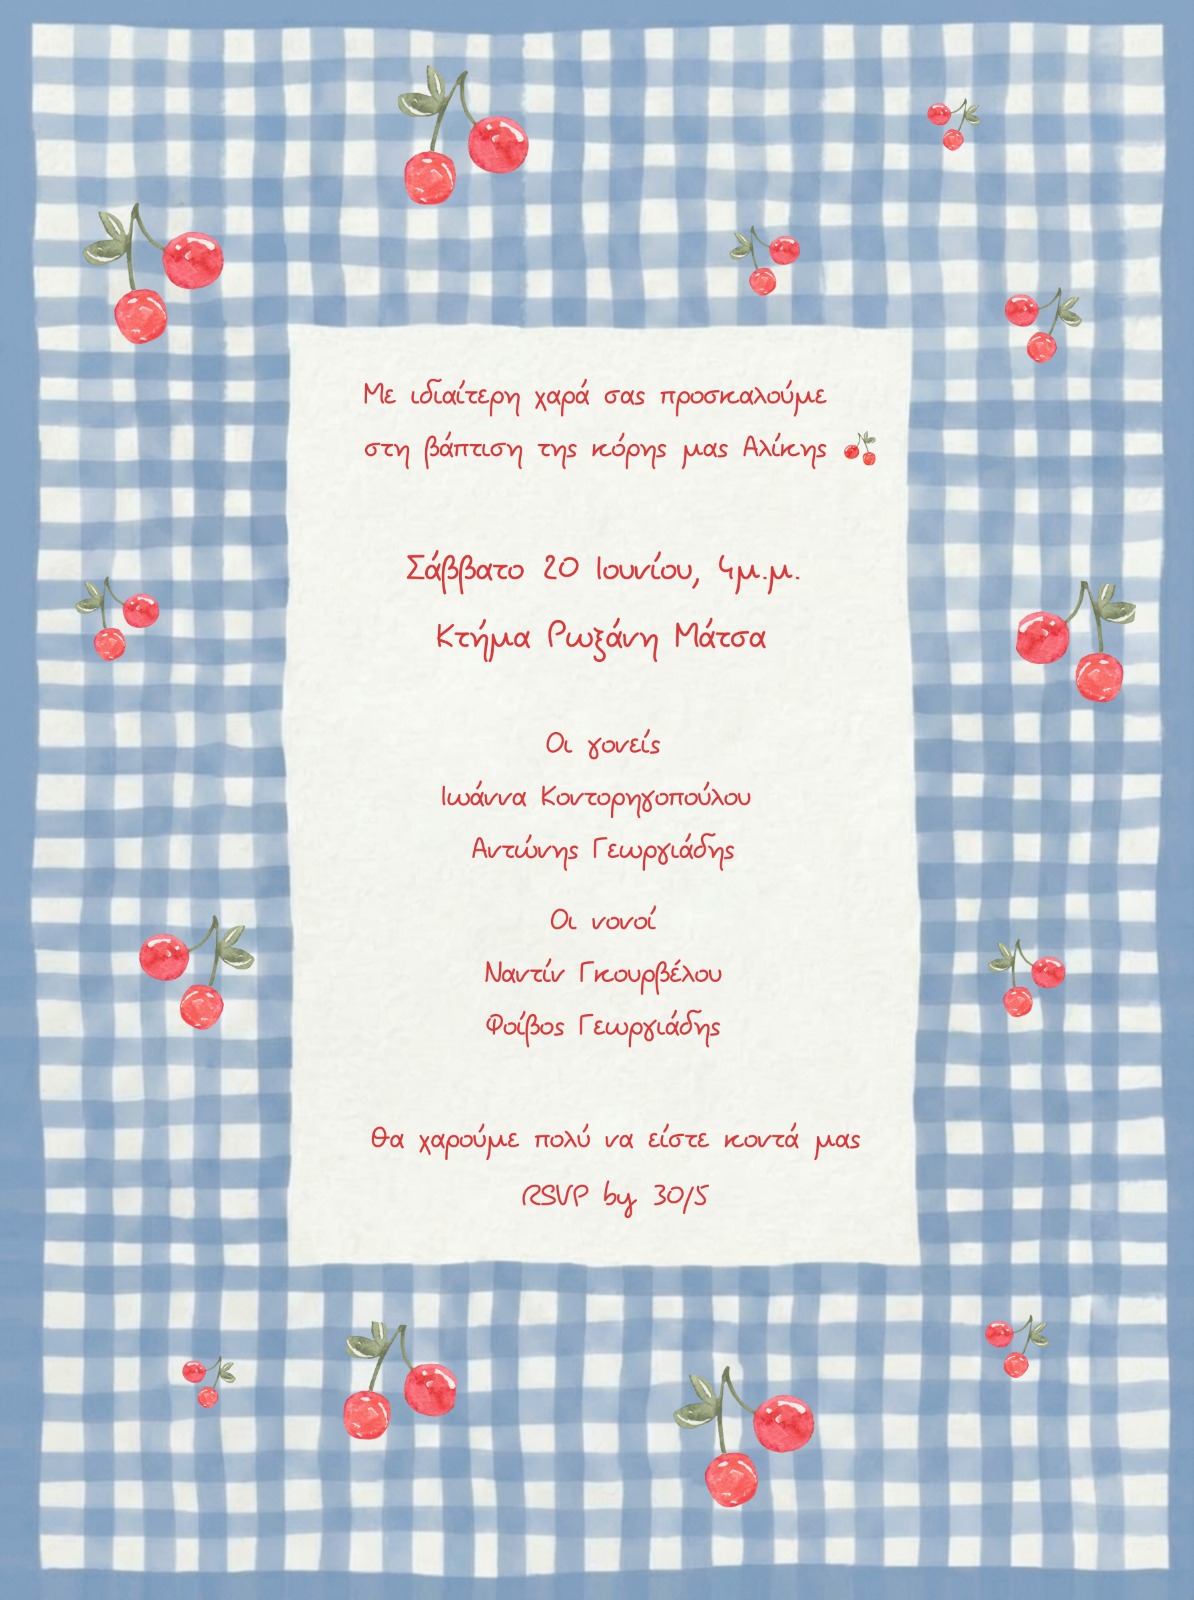 Με ιδιαίτερη χαρά σας προσκαλούμε
στη βάπτιση της κόρης μας Αλίκης
Σάββατο 20 Ιουνίου, 4μ.μ.
Κτήμα Ρωξάνη Μάτσα
Οι γονείς
Ιωάννα Κοντορηγοπούλου
Αντώνης Γεωργιάδης
Οι νονοί
Ναντίν Γκουρβέλου
Φοίβος Γεωργιάδης
Θα χαρούμε πολύ να είστε κοντά μας
RSVP by 30/5